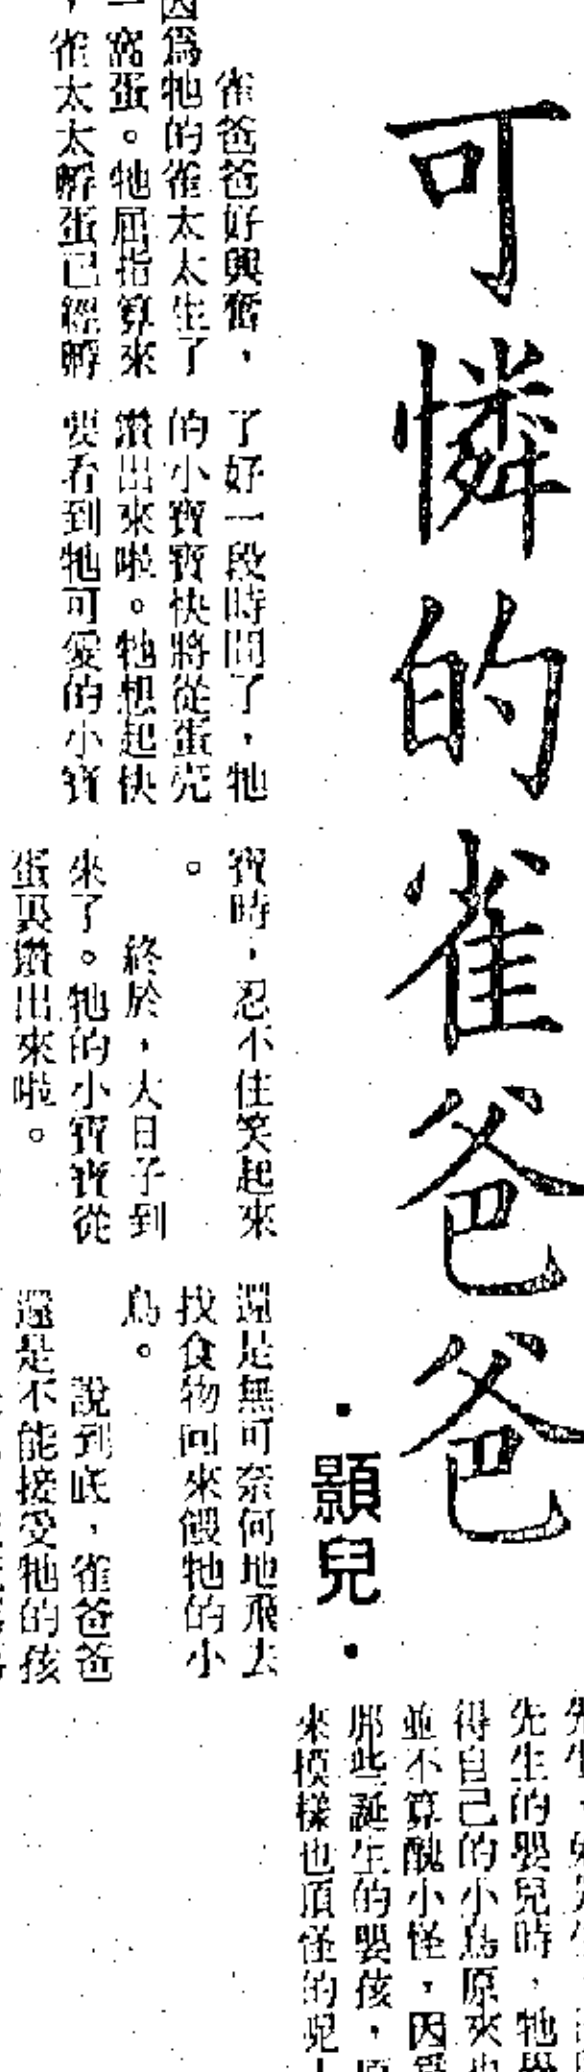 可憐的雀爸爸
·顥兒·
雀爸爸好興奮，
因爲牠的雀太太生了
一窩蛋。牠屈指算來
，雀太太孵蛋已經孵
了好一段時間了，牠
的小寶寶快將從蛋壳
鑽出來啦。牠想起快
要看到牠可愛的小寶
寶時，忍不住笑起來
。
終於，大日子到
來了。牠的小寶寶從
蛋裏鑽出來啦。
還是無可奈何地飛去
找食物回來餵牠的小
鳥。
說到底，雀爸爸
還是不能接受牠的孩
先生的嬰兒時，牠覺
得自己的小鳥原來也
並不算醜小怪，因爲
那些誕生的嬰孩，原
來模樣也頂怪的呢！